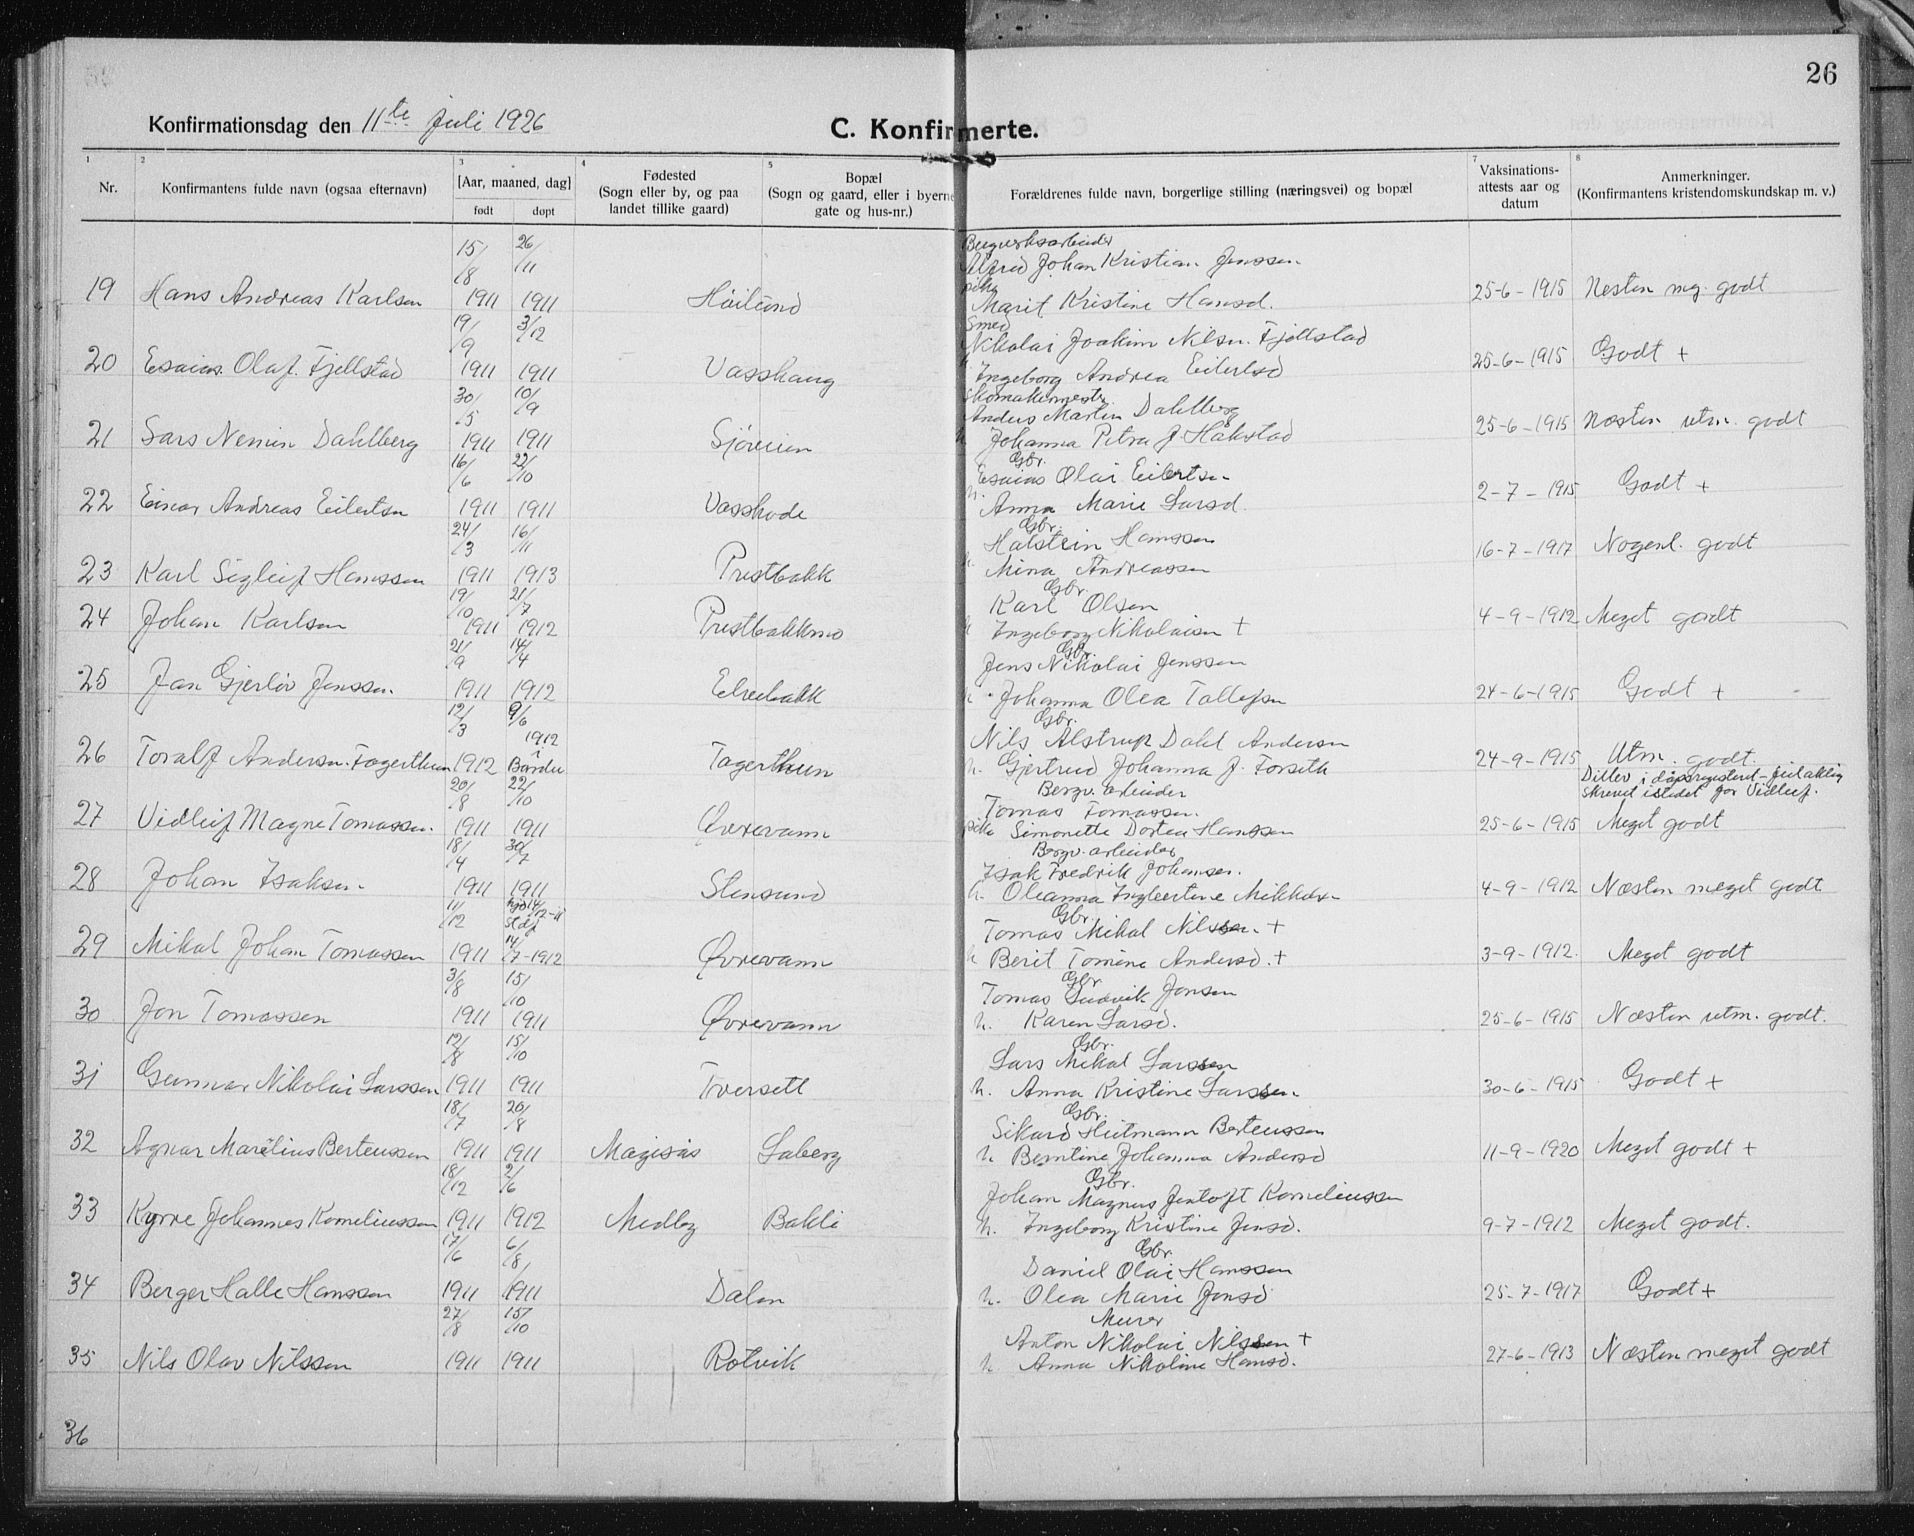 26
Konfirmationsdag den 11te Juli 1926
C. Konfirmerte.
1 2 3 4 5 7 8
Nr. Konfirmantens fulde navn (ogsaa efternavn) [Aar, maaned, dag] født døpt Fødested (Sogn eller by, og paa landet tillike gaard) Bopæl (Sogn og gaard, eller i byerne gate og hus-nr.) Forældrenes fulde navn, borgerlige stilling (næringsvei) og bopæl Vaksinations-attests aar og datum Anmerkninger. (Konfirmantens kristendomskundskap m. v.)
Bergverksarbeider
15/8 26/11 Alfred Johan Kristian Jenssen
19 Hans Andreas Karlsen 1911 1911 Høilund pike Marit Kristine Hansd. 25-6-1915 Nesten mg. godt
Smed
19/9 3/12 Nikolai Joakim Nilsen Fjellstad
20 Esaias Olaf Fjellstad 1911 1911 Vasshaug h. Ingeborg Andrea Eilertsd 25-6-1915 Godt +
Skomakermestr.
30/5 10/9 Anders Martin Dahlberg
21 Lars Nemin Dahlberg 1911 1911 Sjøveien h Johanna Petra J Håkstad 25-6-1915 Næsten utm. godt
Gbr.
16/6 22/10 Esaias Olai Eilertsen
22 Einar Andreas Eilertsen 1911 1911 Vasshode h. Anna Marie Larsd. 2-7-1915 Godt +
Gbr.
24/3 16/11 Halstein Hanssen
23 Karl Sigleif Hanssen 1911 1913 Prestbakk h. Mina Andreassen 16-7-1917 Nogenl. godt
Gbr
19/10 21/7 Karl Olsen
24 Johan Karlsen 1911 1912 Prestbakkmo h Ingeborg Nikolaisen + 4-9-1912 Meget godt
Gbr.
21/9 14/4 Jens Nikolai Jenssen
25 Jan Gjerløv Jenssen 1911 1912 Elvebakk h. Johanna Olea Tollefsen 24-6-1915 Godt +
Gbr.
12/3 9/6 1912 Nils Alstrup Dahl Andersen
26 Toralf Andersen Fagerthun 1912 i Bardu Fagerthun h. Gjertrud Johanna J. Forseth 24-9-1915 Utm. godt.
Bergv. arbeider Ditlev i dåpsregisteret - feilaktig
20/8 22/10 Tomas Tomassen skrevet istedet for Vidleif.
27 Vidleif Magne Tomassen 1911 1911 Øvrevann pike Simonette Dortea Hanssen 25-6-1915 Meget godt
Bergv. arbeider
18/4 30/7 Isak Fredrik Johansen
28 Johan Isaksen 1911 1911 Stensund h. Oleanna Ingbertine 4-9-1912 Næsten meget godt
Gbr.
11/12 14/12-11 Tomas Mikal Nilssen +
29 Mikal Johan Tomassen 1911 14/7-1912 Øvrevann h Berit Tomine Andersd. + 3-9-1912 Meget godt
Gbr.
3/8 15/10 Tomas Ludvik Jonsen
30 Jon Tomassen 1911 1911 Øvrevann h. Karen Larsd. 25-6-1915 Næsten utm. godt.
Gbr.
12/8 15/10 Lars Mikal Larssen
31 Gunnar Nikolai Larssen 1911 1911 Tversett h. Anna Kristine Larssen 30-6-1915 Godt +
Gbr.
18/7 20/8 Sikard Heitmann Berteussen
32 Agnar Marelius Berteussen 1911 1911 Magisås Laberg h Berntine Johanna Andersd 11-9-1920 Meget godt +
Gbr.
18/12 2/6 Johan Magnus Jentoft Korneliussen
33 Kyrre Johannes Korneliussen 1911 1912 Medby Bakli h. Ingeborg Kristine Jensd. 9-7-1912 Meget godt.
Gbr.
17/6 6/8 Daniel Olai Hanssen
34 Berger Halle Hanssen 1911 1911 Dalen h. Olea Marie Jonsd 25-7-1917 Godt +
Murer
27/8 15/10 Anton Nikolai Nilssen +
35 Nils Olav Nilssen 1911 1911 Rotvik h Anna Nikoline Hansd. 27-6-1913 Næsten meget godt
36